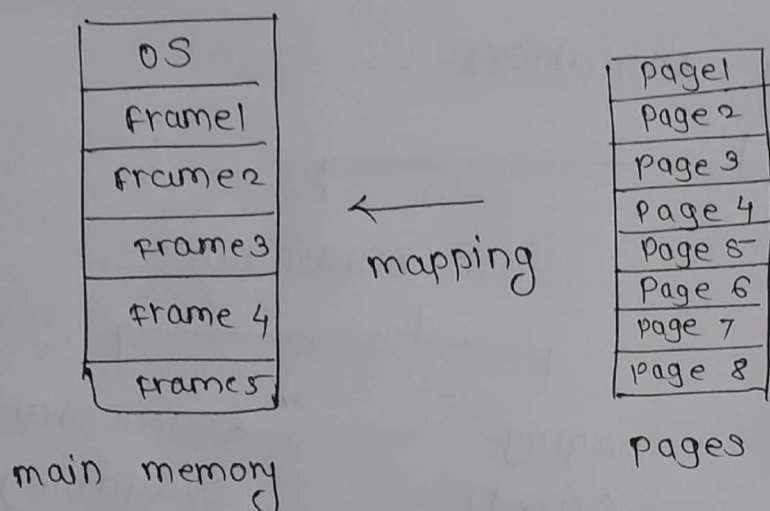 OS
frame1
frame2
frame3
frame 4
frame5
main memory
mapping
page1
Page 2
page 3
page 4
Page 5
Page 6
page 7
page 8
pages